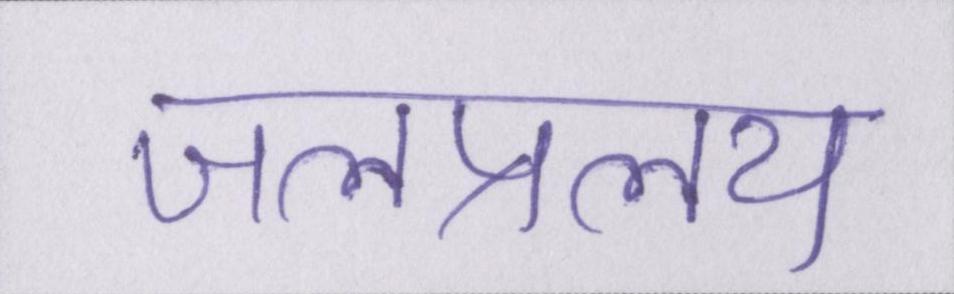 जलप्रलय